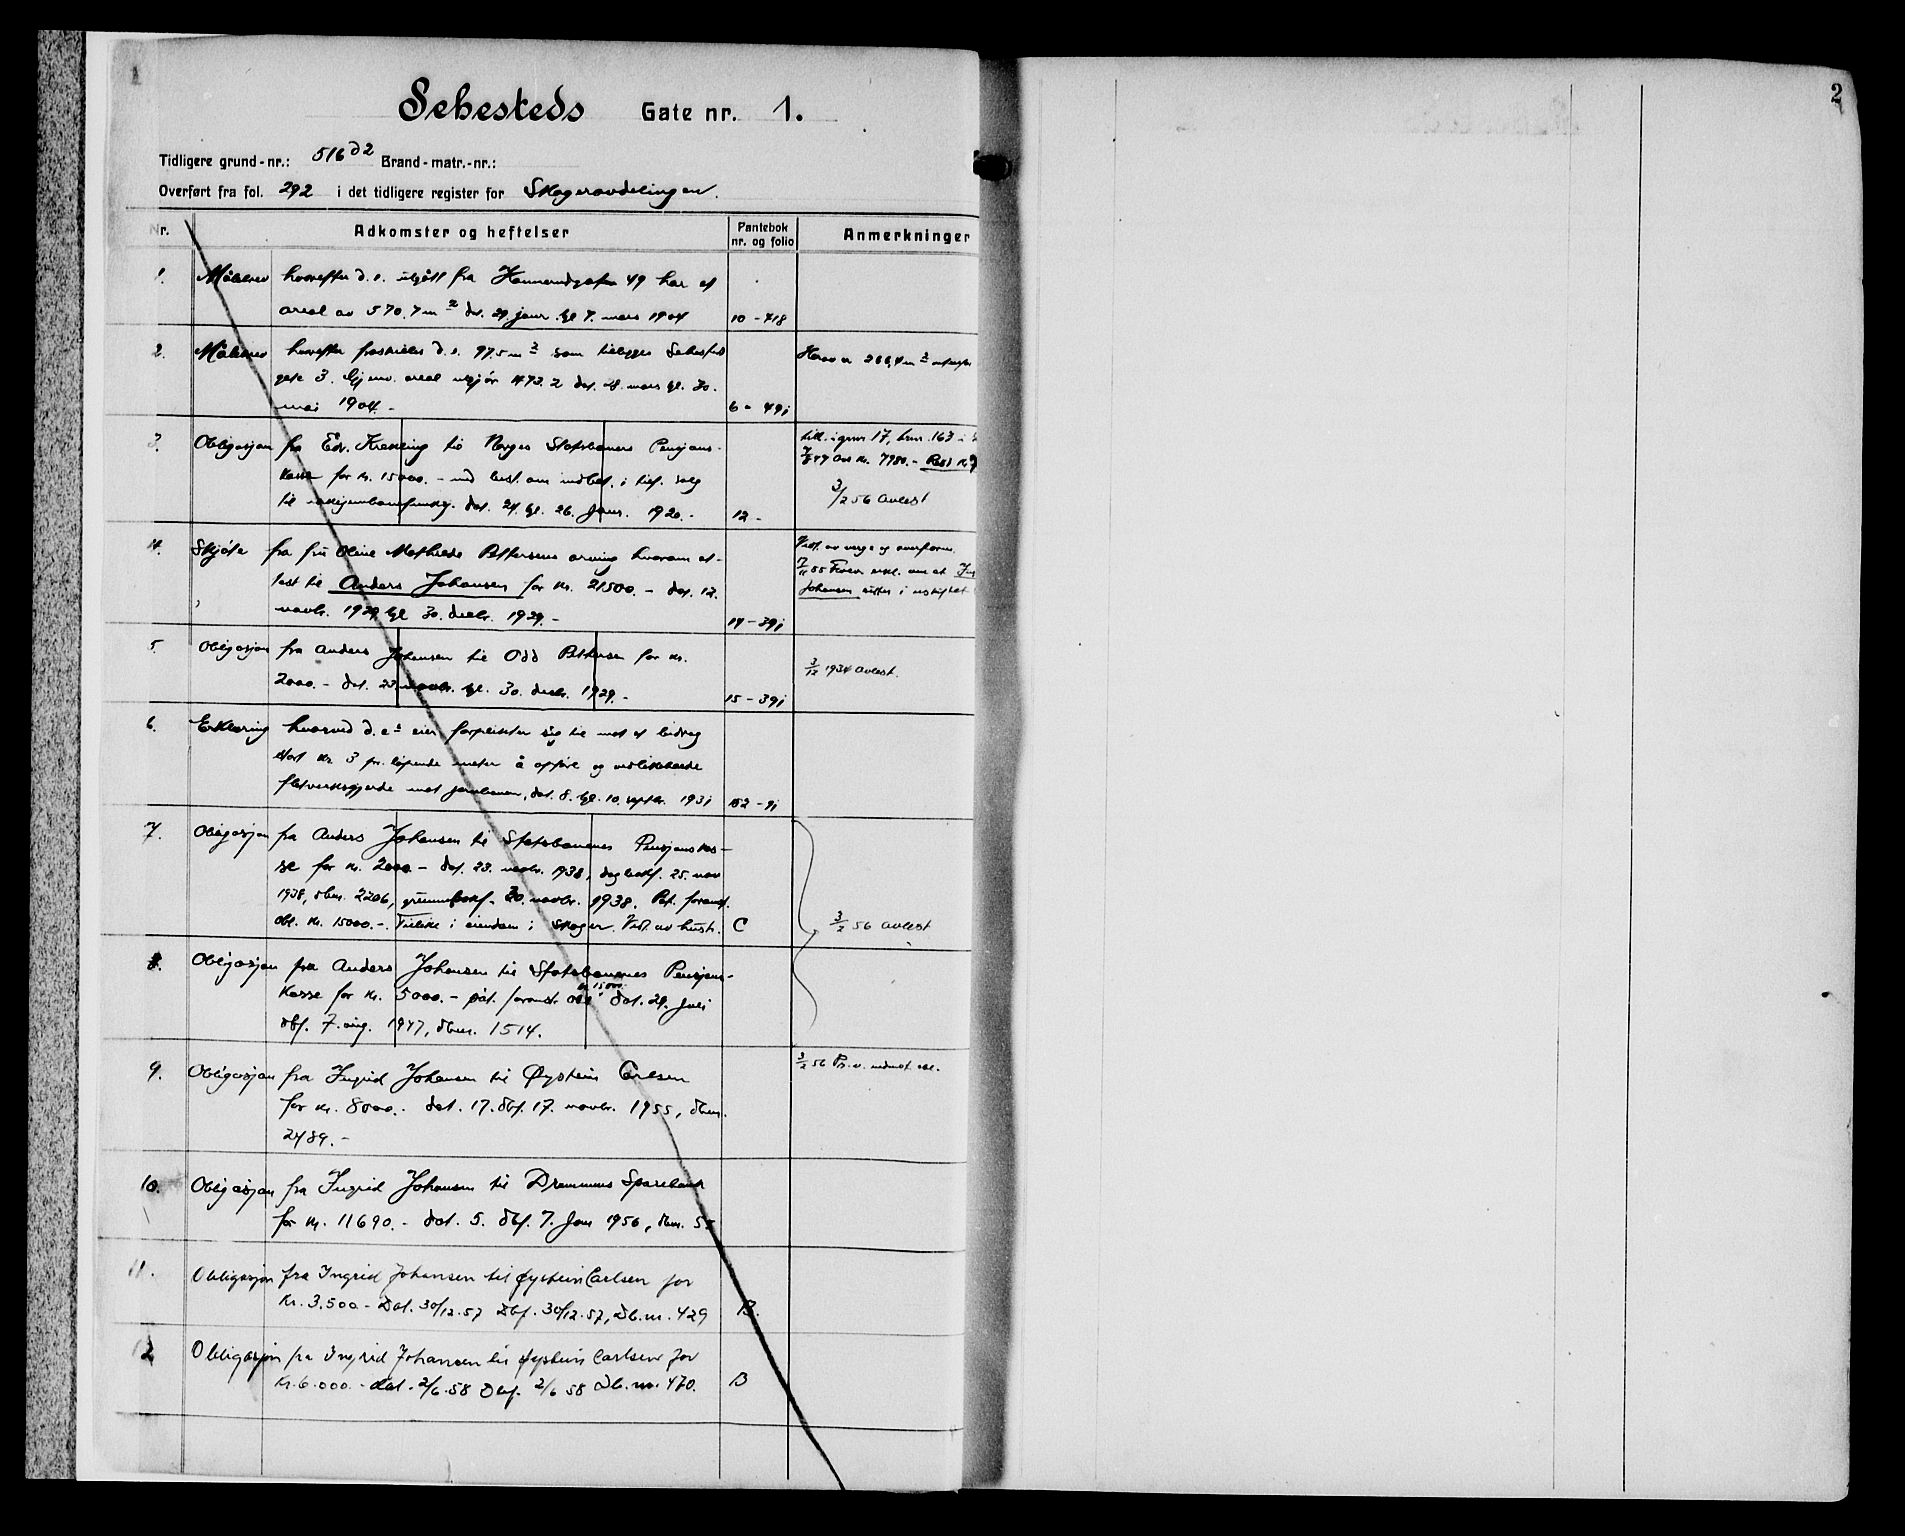 1
Sehesteds Gate nr. 1.
Tidligere grund-nr.: 516 d2 Brand-matr.-nr.:
Overført fra fol. 292 i det tidligere register for Skogeravdelingen.
Nr. Adkomster og heftelser Pantebok nr. og folio Anmerkninger
1. Målebrev hvorefter d. e. utgått fra 49 har et
areal av 570.7 m2 dat. 29. janr. tgl. 7. mars 1904 10 - 718
2. Målebrev hvorefter fraskilles d. e. 97.5 m2 som tillegges Sehesteds
gate 3. Gjenv. areal utgjør 473.2 dat. 18. mars tgl. 30. Herav er 266,4 m2
mai 1904. - 6 - 491
3. Obligasjon fra Edv. til Norges Statsbaners Pensjons-
kasse for kr. 15000. - med best. om indbet. i tilf. salg
til dat. 24. tgl. 26. janr. 1920. - 12 -
till. i gnr. 17, brnr. 163 i
49 Avs kr. 7980. - Rest kr.
3/2 56 avlest
4. Skjøte fra fru Oline Mathilde Pettersens arving hvorom at-
test til Anders Johansen for kr. 21500. - dat. 12.
novbr. 1929 tgl. 30. decbr. 1929. - 14 - 391
55 om at
Johansen sitter i uskiftet
5 Obligasjon fra Anders Johansen til Odd Pettersen for kr.
2000. - dat. 23. novbr. tgl. 30. decbr. 1929. - 15 - 391
3/12 1934 avlest.
6. Erklæring hvorved d. e.s eier forplikter sig til mot et bidrag
stort kr. 3 pr. løpende meter å opføre og vedlikeholde
flatverksgjerde mot jernbanen, dat. 8. tgl. 10. septbr. 1931 - 91
7. Obligasjon fra Anders Johansen til Statsbanenes Pensjonskas-
se for kr. 2000. - dat. 23. novbr. 1938, dagbokf. 25. nov
1938, dbnr. 2206, grunnbokf. 30. novbr. 1938. Pri. foranst.
obl. kr. 15000. -. Tillike i eiendom i Skoger. Vedt. av hustr. C
3/2 56 avlest
8. Obligasjon fra Anders Johansen til Statsbanenes Pensjons-
kasse for kr. 5000. - pri. foranst. obl kr. 15000. dat. 29. juli
dbf. 7. aug. 1947, dbnr. 1514.
9. Obligasjon fra Ingrid Johansen til Øystein Carlsen
for kr. 8000. - dat. 17. dbf. 17. novbr. 1955, dbnr.
2489. -
3/2 56 Pr. v. nedenst. obl.
10. Obligasjon fra Ingrid Johansen til Drammens Sparebank
for kr. 11690. - dat. 5. dbf. 7. jan 1956, dbnr. 55
11. Obligasjon fra Ingrid Johansen til Øystein Carlsen for
kr. 3.500 - Dat. 30/12.57 Dbf. 30/12.57, Db.nr. 429 B.
12 Obligasjon fra Ingrid Johansen til Øystein Carlsen for
kr. 6.000. - dat. 2/6.58 Dbf. 2/6 58 Db.nr. 470. B
2